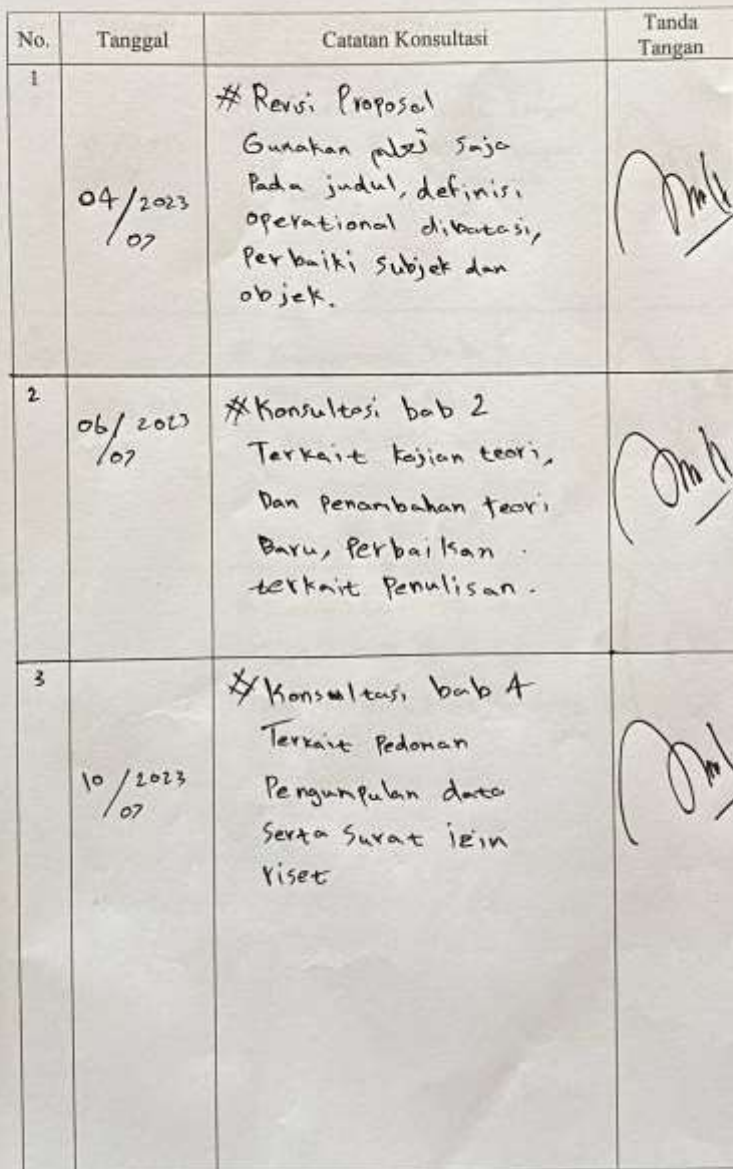 No. Tanggal Catatan Konsultasi Tanda Tangan
1
# Revisi Proposal
Gunakan saja
Pada judul, definisi
04/2023
07
operational dibatasi,
Perbaiki Subjek dan
objek.
2
06/2023
07
# Konsultasi bab 2
Terkait kajian teori,
Dan Penambahan teori
Baru, Perbaikan
terkait Penulisan.
3
# Konsultasi bab 4
Terkait Pedoman
10/2023
07
Pengumpulan data
Serta Surat izin
riset